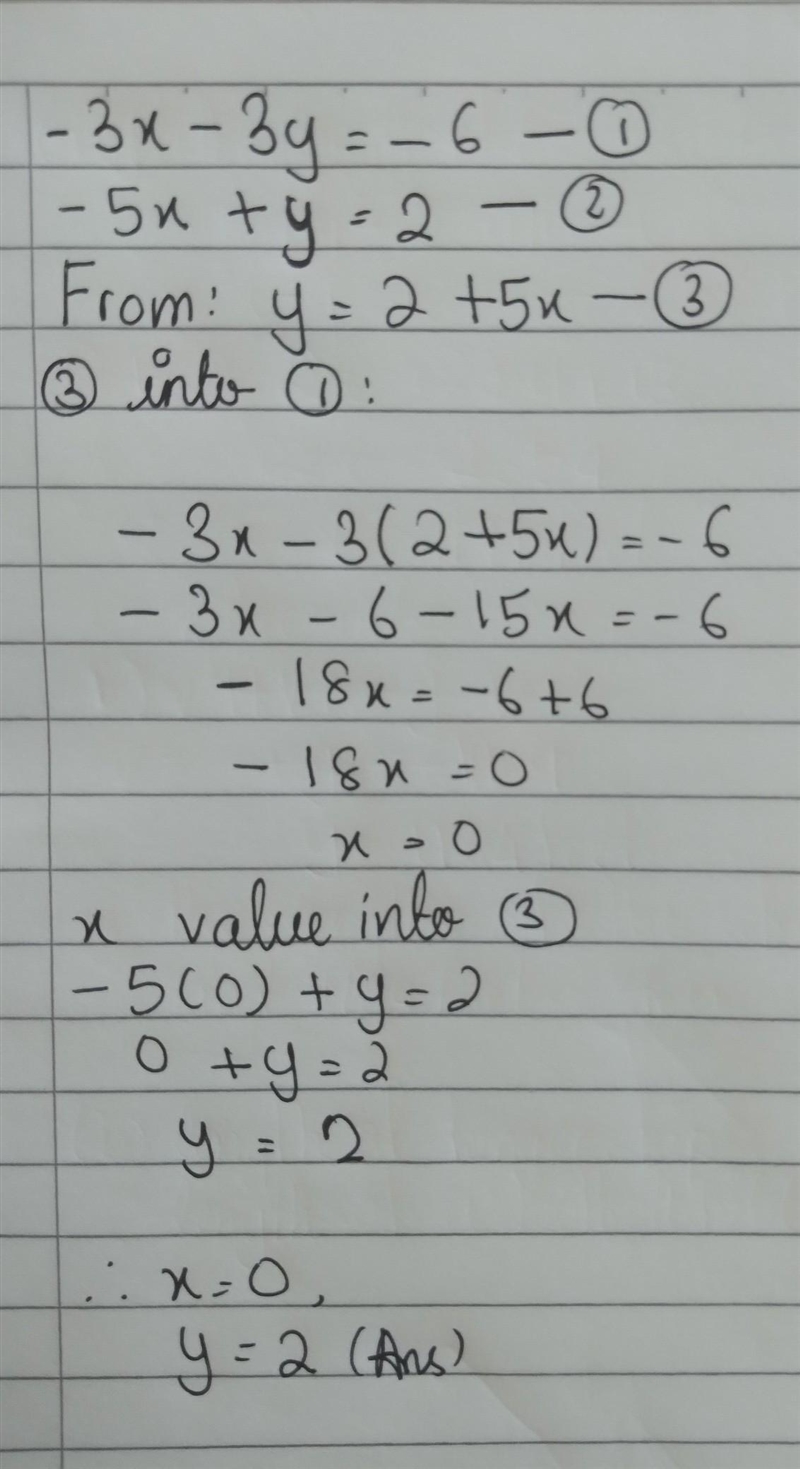 -3x - 3y = -6 — ①
-5x + y = 2 — ②
From: y = 2 + 5x — ③
③ into ① :
- 3x - 3(2 + 5x) = - 6
- 3x - 6 - 15x = - 6
- 18x = -6 + 6
- 18x = 0
x = 0
x value into ③
- 5(0) + y = 2
0 + y = 2
y = 2
∴ x = 0,
y = 2 (Ans)